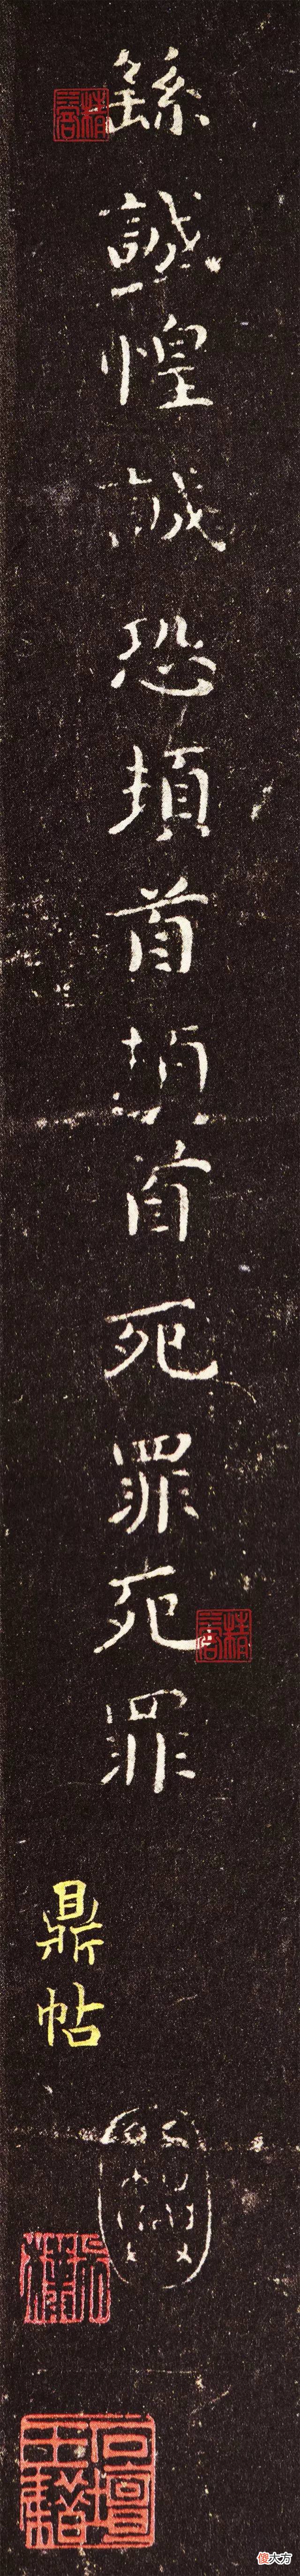 繇誠惶誠恐頓首頓首死罪死罪
鼎帖
傻大方